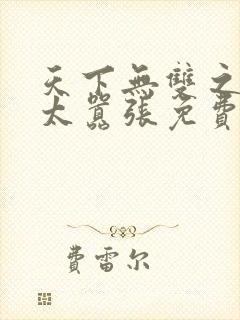 天下無雙之
太囂張免費
費雷尔